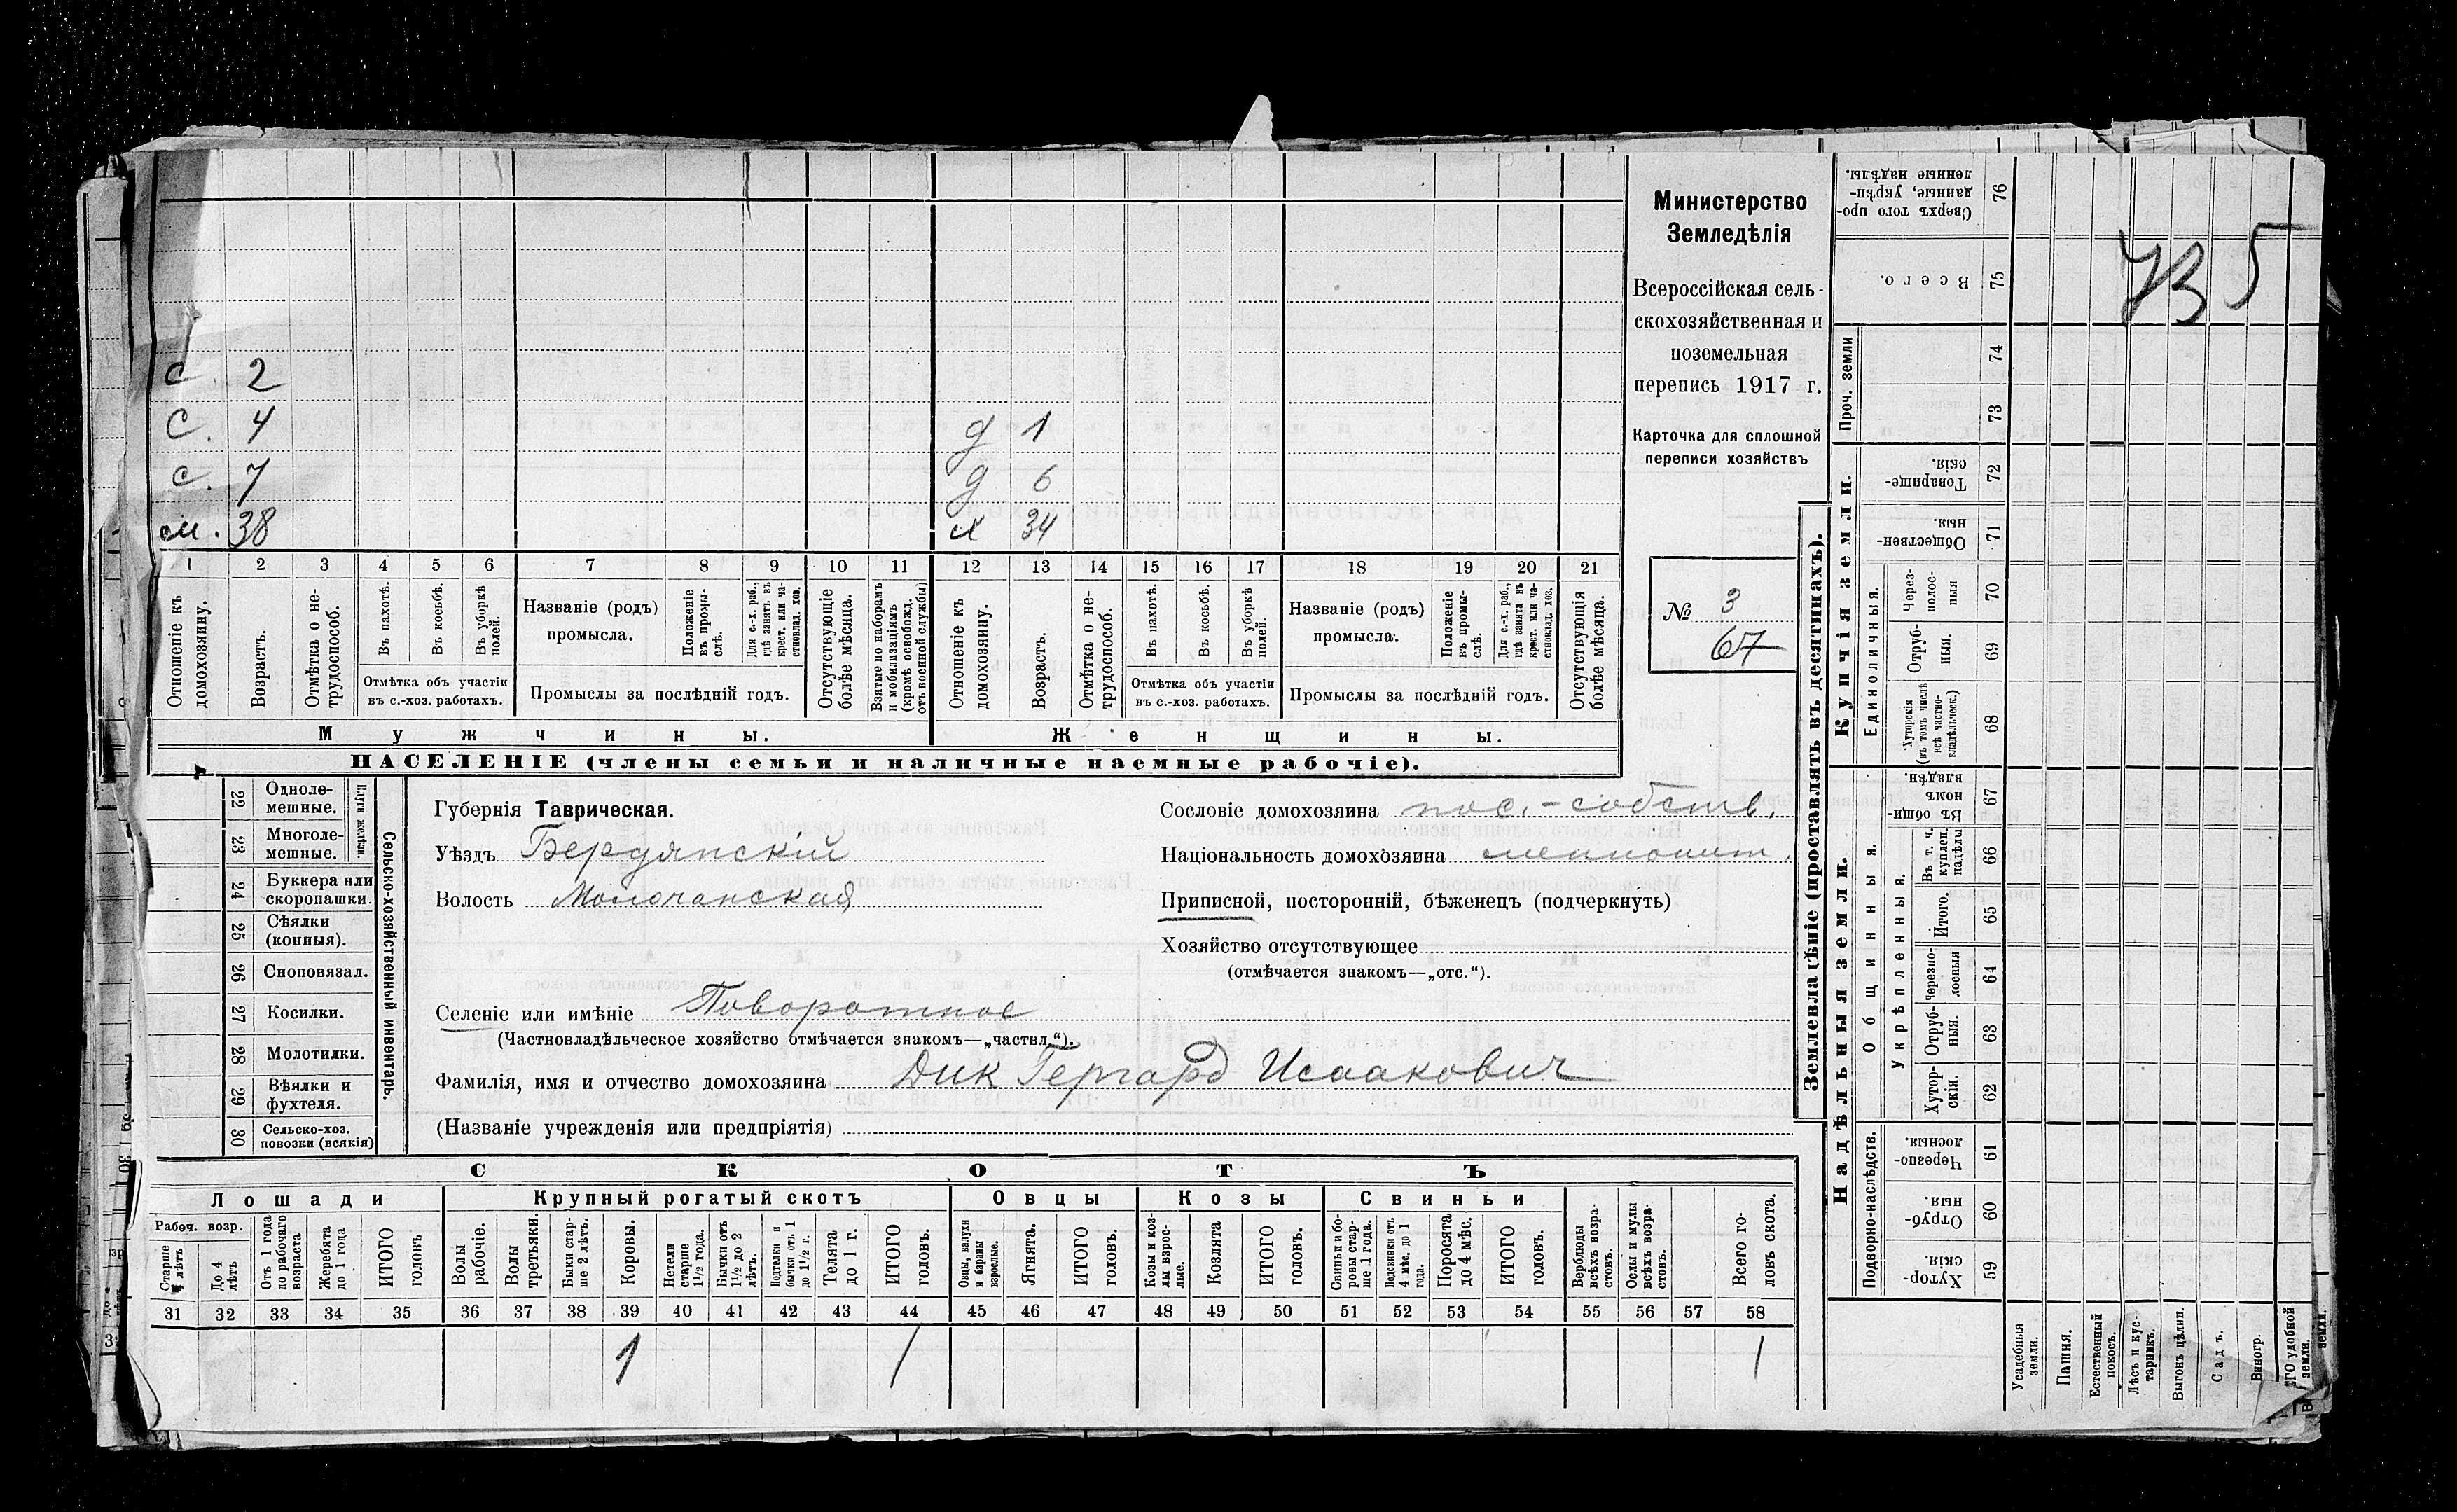 с. 2
с. 4 д 1
с. 7 д 6
м. 38 м 34
1 2 3 4 5 6 7 8 9 10 11 12 13 14 15 16 17 18 19 20 21
Отношеніе къ домохозяину.
Возрастъ.
Отмѣтка о не-
трудоспособ.
Въ пахотѣ.
Въ косьбѣ.
Въ уборкѣ полей.
Отмѣтка объ участіи
въ с.-хоз. работахъ.
Названіе (родъ)
промысла.
Положеніе въ промы-
слѣ.
Для с.-х. раб., гдѣ занятъ въ крест. или ча-
стновлад. хоз.
Промыслы за послѣдній годъ.
Отсутствующіе болѣе мѣсяца.
Взятые по наборамъ и мобилизаціямъ (кромѣ освобожд. отъ военной службы)
Отношеніе къ домохозяину.
Возрастъ.
Отмѣтка о не-
трудоспособ.
Въ пахотѣ.
Въ косьбѣ.
Въ уборкѣ полей.
Отмѣтка объ участіи
въ с.-хоз. работахъ.
Названіе (родъ)
промысла.
Положеніе въ промы-
слѣ.
Для с.-х. раб., гдѣ занята въ крест. или ча-
стновлад. хоз.
Промыслы за послѣдній годъ.
Отсутствующія болѣе мѣсяца.
Мужчины.
Женщины.
НАСЕЛЕНІЕ (члены семьи и наличные наемные рабочіе).
Министерство
Земледѣлія
Всероссійская сель-
скохозяйственная и
поземельная
перепись 1917 г.
Карточка для сплошной
переписи хозяйствъ
№ 3
67
22 Однoле-
мешные.
23 Многоле-
мешные.
Плуги желѣзн.
24 Буккера или
скоропашки.
25 Сѣялки
(конныя).
26 Сноповязал.
27 Косилки.
28 Молотилки.
29 Вѣялки и
фухтеля.
30 Сельско-хоз.
повозки (всякія)
Сельско-хозяйственный инвентарь.
Губернія Таврическая.
Уѣздъ Бердянскій
Волость Молочанская
Селеніе или имѣніе Поворотное
(Частновладѣльческое хозяйство отмѣчается знакомъ—„частвл.“).
Фамилія, имя и отчество домохозяина Дик Гергард Исаакович
(Названіе учрежденія или предпріятія)
Сословіе домохозяина пос.-собств.
Національность домохозяина меннонит.
Приписной, посторонній, бѣженецъ (подчеркнуть)
Хозяйство отсутствующее
(отмѣчается знакомъ—„отс.“).
СКОТЪ
Лошади
Крупный рогатый скотъ
Овцы
Козы
Свиньи
Рабоч. возр.
Старше 4 лѣтъ
До 4 лѣтъ
Отъ 1 года до рабочаго возраста
Жеребята до 1 года
ИТОГО головъ
Волы рабочіе.
Волы третьяки.
Быки стар-
ше 2 лѣтъ.
Коровы.
Нетели старше 1½ года.
Бычки отъ 1½ до 2 лѣтъ.
Подтелки и бычки отъ 1 до 1½ г.
Телята до 1 г.
ИТОГО головъ.
Овцы, валухи и бараны взрослые.
Ягнята.
ИТОГО головъ.
Козы и коз-
лы взрос-
лые.
Козлята
ИТОГО головъ.
Свиньи и бо-
ровы стар-
ше 1 года.
Подсвинки отъ 4 мѣс. до 1 года.
Поросята до 4 мѣс.
ИТОГО головъ.
Верблюды всѣхъ возра-
стовъ.
Ослы и мулы всѣхъ возра-
стовъ.
Всего го-
ловъ скота.
31 32 33 34 35 36 37 38 39 40 41 42 43 44 45 46 47 48 49 50 51 52 53 54 55 56 57 58
1 1 1
Землевладѣніе (проставлять въ десятинахъ).
Надѣльныя земли.
Купчія земли.
Проч. земли
Подворно-наслѣдств.
Общинныя.
Укрѣпленныя.
Единоличныя.
Сверхъ того про-
данные, укрѣп-
ленные надѣлы.
76
Всего.
75
74
73
Товарище-
скія.
72
Обществен-
ныя.
71
Через-
полос-
ныя
70
Отруб-
ныя.
69
Хуторскія (въ томъ числѣ всѣ частно-
владѣльческ.)
68
Въ общин-
номъ
владѣн.
67
Въ т. ч. куплен. надѣлы
66
Итого.
65
Черезпо-
лосныя
64
Отруб-
ныя.
63
Хутор-
скія.
62
Черезпо-
лосныя.
61
Отруб-
ныя.
60
Хутор-
скія.
59
Усадебныя земли.
Пашня.
Естественный покосъ.
Лѣсъ и кус-
тарникъ.
Выгонъ цѣлин.
Садъ.
Виногр.
удобной земли.
земли.